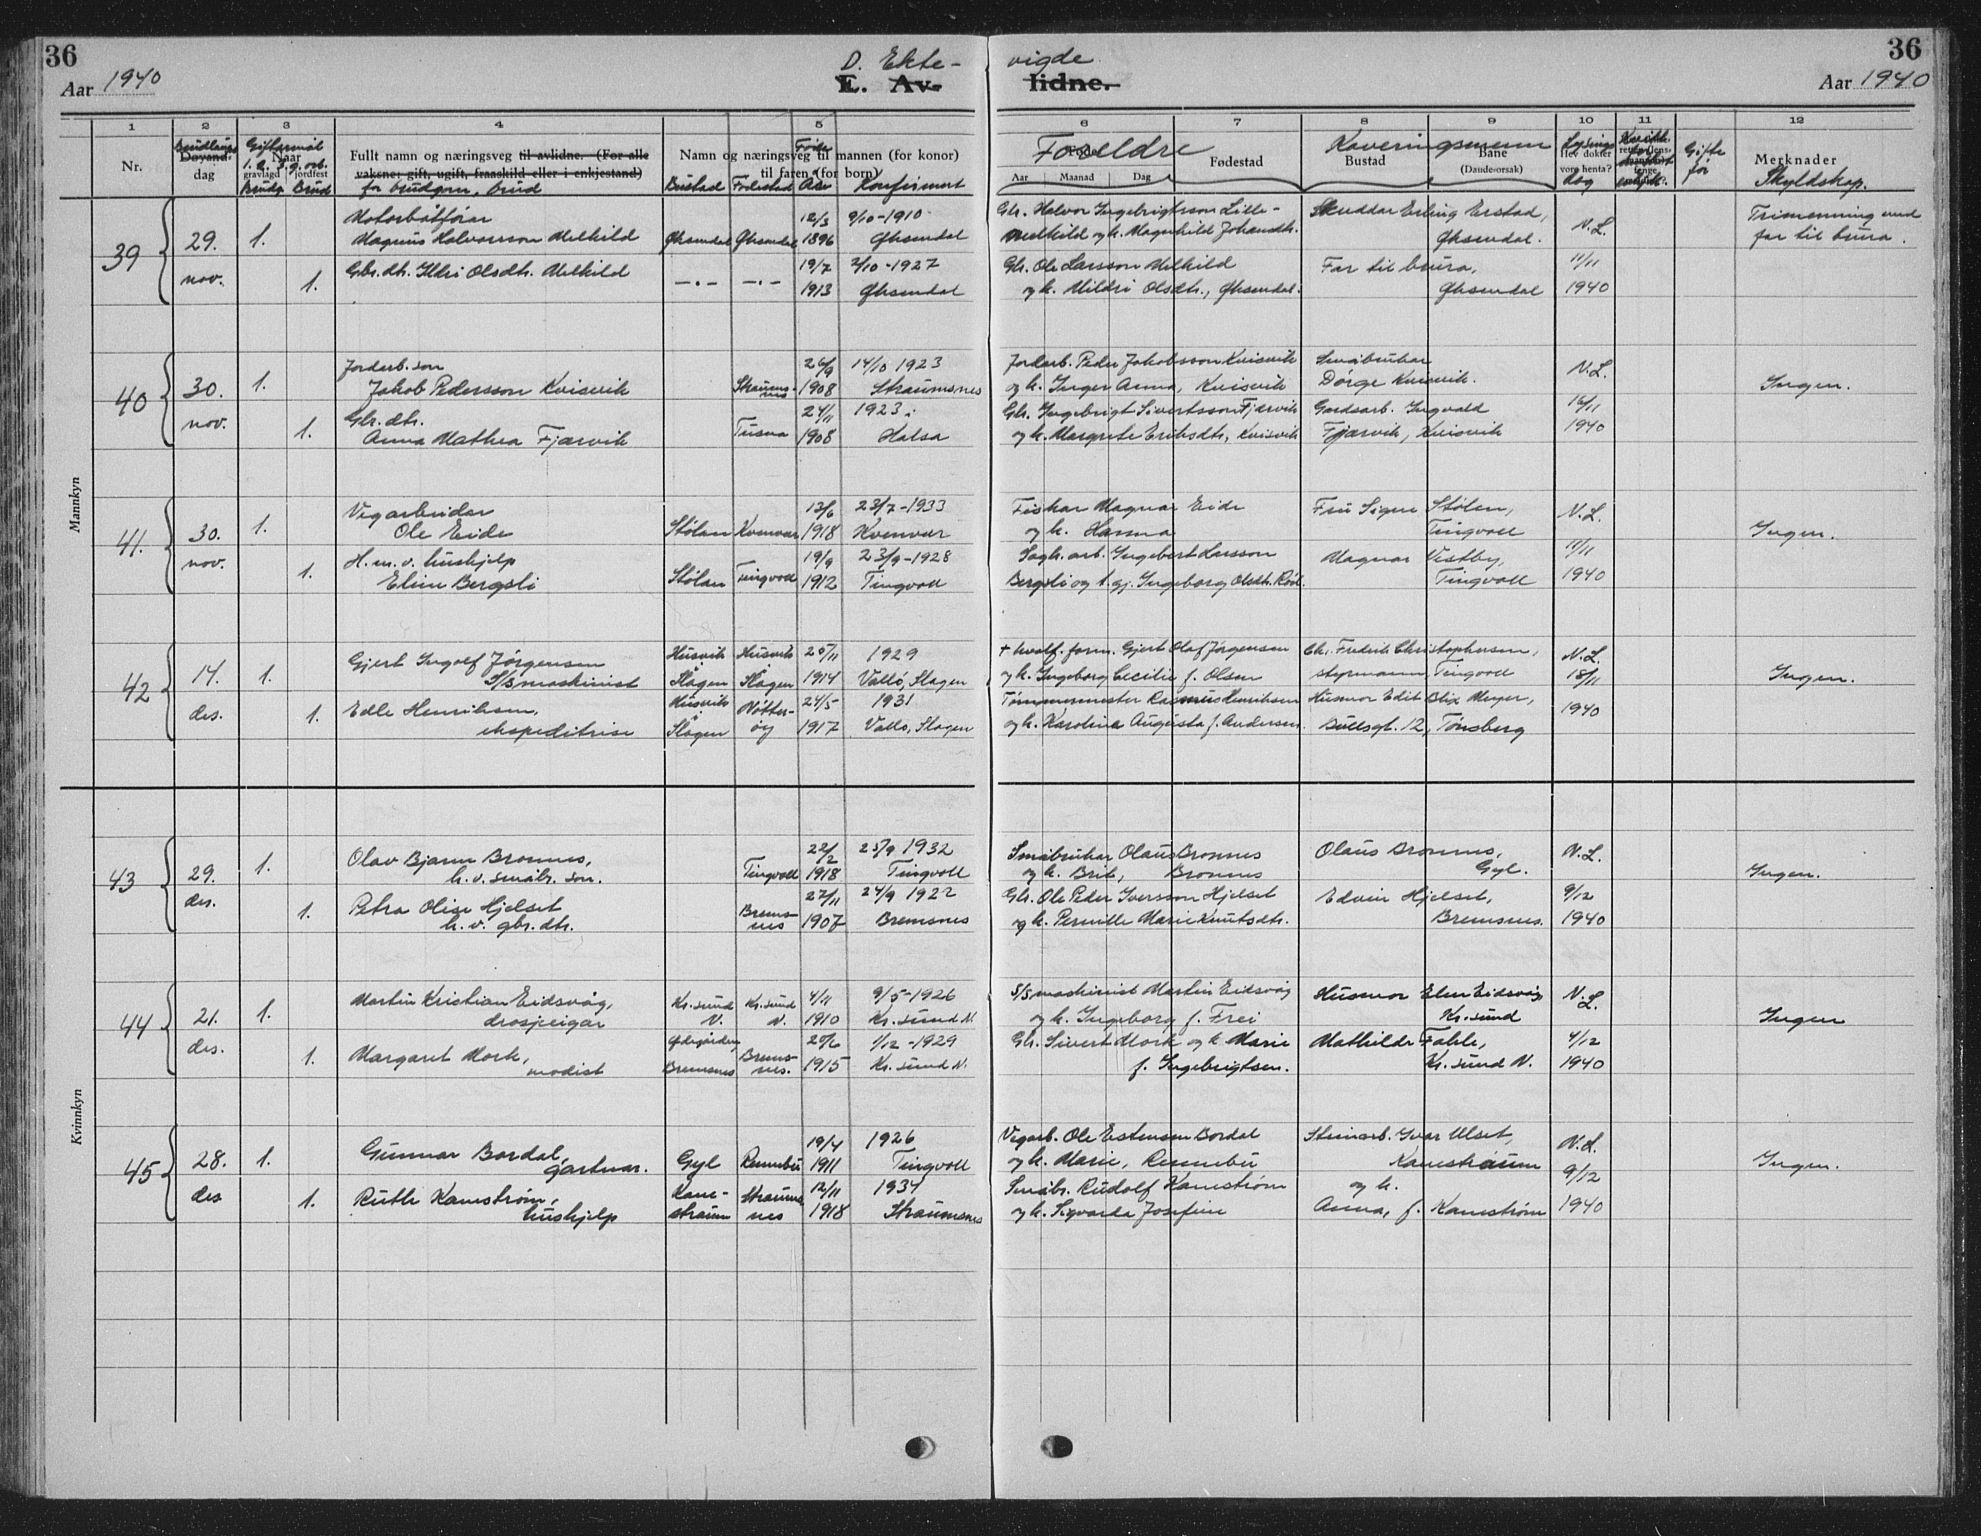 36
Aar 1940
D. Ekte-
E. Av-
1
2
3
4
5
Nr.
Brudlaups
Døyand-
dag
Giftarmål
Naar
gravlagd
jordfest
Brudg. Brud
Fullt namn og næringsveg til avlidne. (For alle
vaksne: gift, ugift, fraaskild eller i enkjestand)
for brudgom, brud
Namn og næringsveg til mannen (for konor)
til faren (for born)
Bustad Fødestad Født Aar Konfirmert
39
29.
nov.
1.
1.
Motorbåtførar
Magnus Halvorsson Melkild
Øksendal Øksendal 12/3 1896 9/10-1910 Øksendal
Gbr. dt. Ildri Olsdt. Melkild
—·— —·— 19/7 1913 2/10-1927 Øksendal
40
30.
nov.
1.
1.
Jordarb. son
Jakob Pedersson Kvisvik
Straumsnes 26/9 1908 14/10 1923 Straumsnes
Gbr. dtr.
Anna Mathea Fjærvik
Tusna 24/11 1908 1923 i Halsa
41.
30.
nov.
1.
1.
Vegarbeidar
Ole Eide
Stølan Kvenvær 13/6 1918 23/7-1933 Kvenvær
H. m. v. hushjelp
Eline Bergsli
Stølan Tingvoll 19/9 1912 23/9-1928 Tingvoll
42
14.
des.
1.
1.
Gjert Ingolf Jørgensen
S/S maskinist
Husvik Slagen Husvik Slagen 20/11 1914 1929 Vallø, Slagen
Edle Henriksen,
ekspeditrise
Husvik Slagen Nøtterøy 24/5 1917 1931 Vallø, Slagen
43
29.
des.
1.
1.
Olav Bjarne Bronnes,
h. v. småbr. son.
Tingvoll 22/2 1918 25/9 1932 Tingvoll
Petra Olise Hjelset
h. v. gbr. dtr.
Bremsnes 27/11 1907 24/9 1922 Bremsnes
44
21.
des.
1.
1.
Martin Kristian Eidsvåg,
drosjeeigar
Kr.sund N. Kr.sund N. 4/11 1910 9/5-1926 Kr.sund N.
Margaret Mork,
modist
Ødegården Bremsnes Bremsnes. 20/6 1915 1/12-1929 Kr.sund N.
45
28.
des
1.
1.
Gunnar Bordal,
gartnar.
Gyl Rennebu 19/4 1911 1926 Tingvoll
Ruth Kanestrøm,
hushjelp
Kanestraum Straumsnes 12/11 1918 1934 Straumsnes
Mannkyn
Kvinnkyn
36
Aar 1940
vigde
lidne.
6
7
8
9
10
11
12
Foreldre
Aar Maanad Dag
Fødestad
Kaveringsmenn
Bustad
Bane
(Daude-orsak)
Lysings
Hev dokter
vore henta?
dag
Gifte
før
Merknader
Skyldskap.
Gbr. Halvor Ingebrigtsson Lille-
Melkild og k. Magnhild Johansdt.
Skuddar Erling Erstad,
Øksendal.
N.L.
Trimenning med
far til brura.
Gbr. Ole Larsson Melkild
og k. Mildri Olsdtr., Øksendal.
Far til brura,
Øksendal
11/11
1940
Jordarb. Peder Jakobsson Kvisvik
og k. Inger Anna, Kvisvik
Småbrukar
Dørge Kvisvik.
N.L.
Ingen.
Gbr. Ingebrigt Sivertsson Fjærvik
og k. Margrete Eriksdtr., Kvisvik
Gardsarb. Ingvald
Fjærvik, Kvisvik
16/11
1940
Fiskar Magnar Eide
og k. Hanna
Fru Signe Stølen,
Tingvoll
N.L.
Ingen.
Sagb. arb. Ingebert Larsson
Bergsli og t. gj. Ingeborg Olsdt. Röel.
Magnar Vistby,
Tingvoll
11/11
1940
+ hvalf. form. Gjert Olaf Jørgensen
og k. Ingeborg Cecilie f. Olsen
Chr. Fredrik Christophersen,
styrmann, Tingvoll
N.L.
18/11
Ingen.
Tømmermester Rasmus Henriksen
og k. Karoline Augusta f. Andersen.
Husmor Edit Blix Meyer,
Bullsgt. 12, Tønsberg
1940
Småbrukar Olaus Bronnes
og k. Brit, Bronnes
Olaus Bronnes,
Gyl.
N.L.
Ingen.
Gbr. Ole Peder Iversson Hjelset
og k. Pernille Marie Knutsdtr.
Edvin Hjelset,
Bremsnes.
9/12
1940
S/S maskinist Martin Eidsvåg
og k. Ingeborg f. Frei
Husmor Elen Eidsvåg
Kr.sund
N.L.
Ingen
Gbr. Sivert Mork og k. Marie
f. Ingebrigtsen.
Mathilde Fahle,
Kr.sund N.
4/12
1940
Vegarb. Ole Estensen Bordal
og k. Marie, Rennebu
Steinarb. Ivar Ulset,
Kanestraum
N.L.
9/12
Ingen.
Småbr. Rudolf Kanestrøm
og k. Sigvarda Josefine
og k.
Anna, f. Kanestrøm
1940